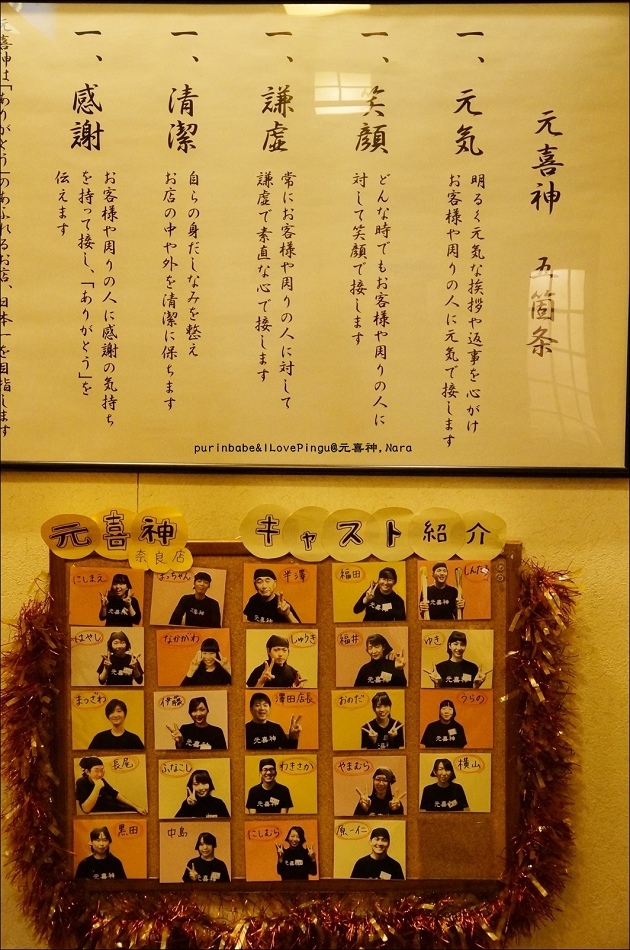 元喜神 五箇条
一、元気
明るく元気な挨拶や返事を心がけ
お客様や周りの人に元気で接します
一、笑顔
どんな時でもお客様や周りの人に
対して笑顔で接します
一、謙虚
常にお客様や周りの人に対して
謙虚で素直な心で接します
一、清潔
自らの身だしなみを整え
お店の中や外を清潔に保ちます
一、感謝
お客様や周りの人に感謝の気持ち
を持って接し、「ありがとう」を
伝えます
元喜神は「ありがとう」のあふれるお店、日本一を目指します
purinbabe&ILovePingu@元喜神,Nara
元喜神
奈良店
キャスト紹介
にしまえ
まっちゃん
半澤
福田
しんたろ
はやし
なかがわ
しゅうき
福井
ゆき
まつざわ
伊藤
澤田店長
おのだ
うらの
長尾
ふなこし
わきさか
やまむら
横山
黒田
中島
にしむら
原一仁
元喜神